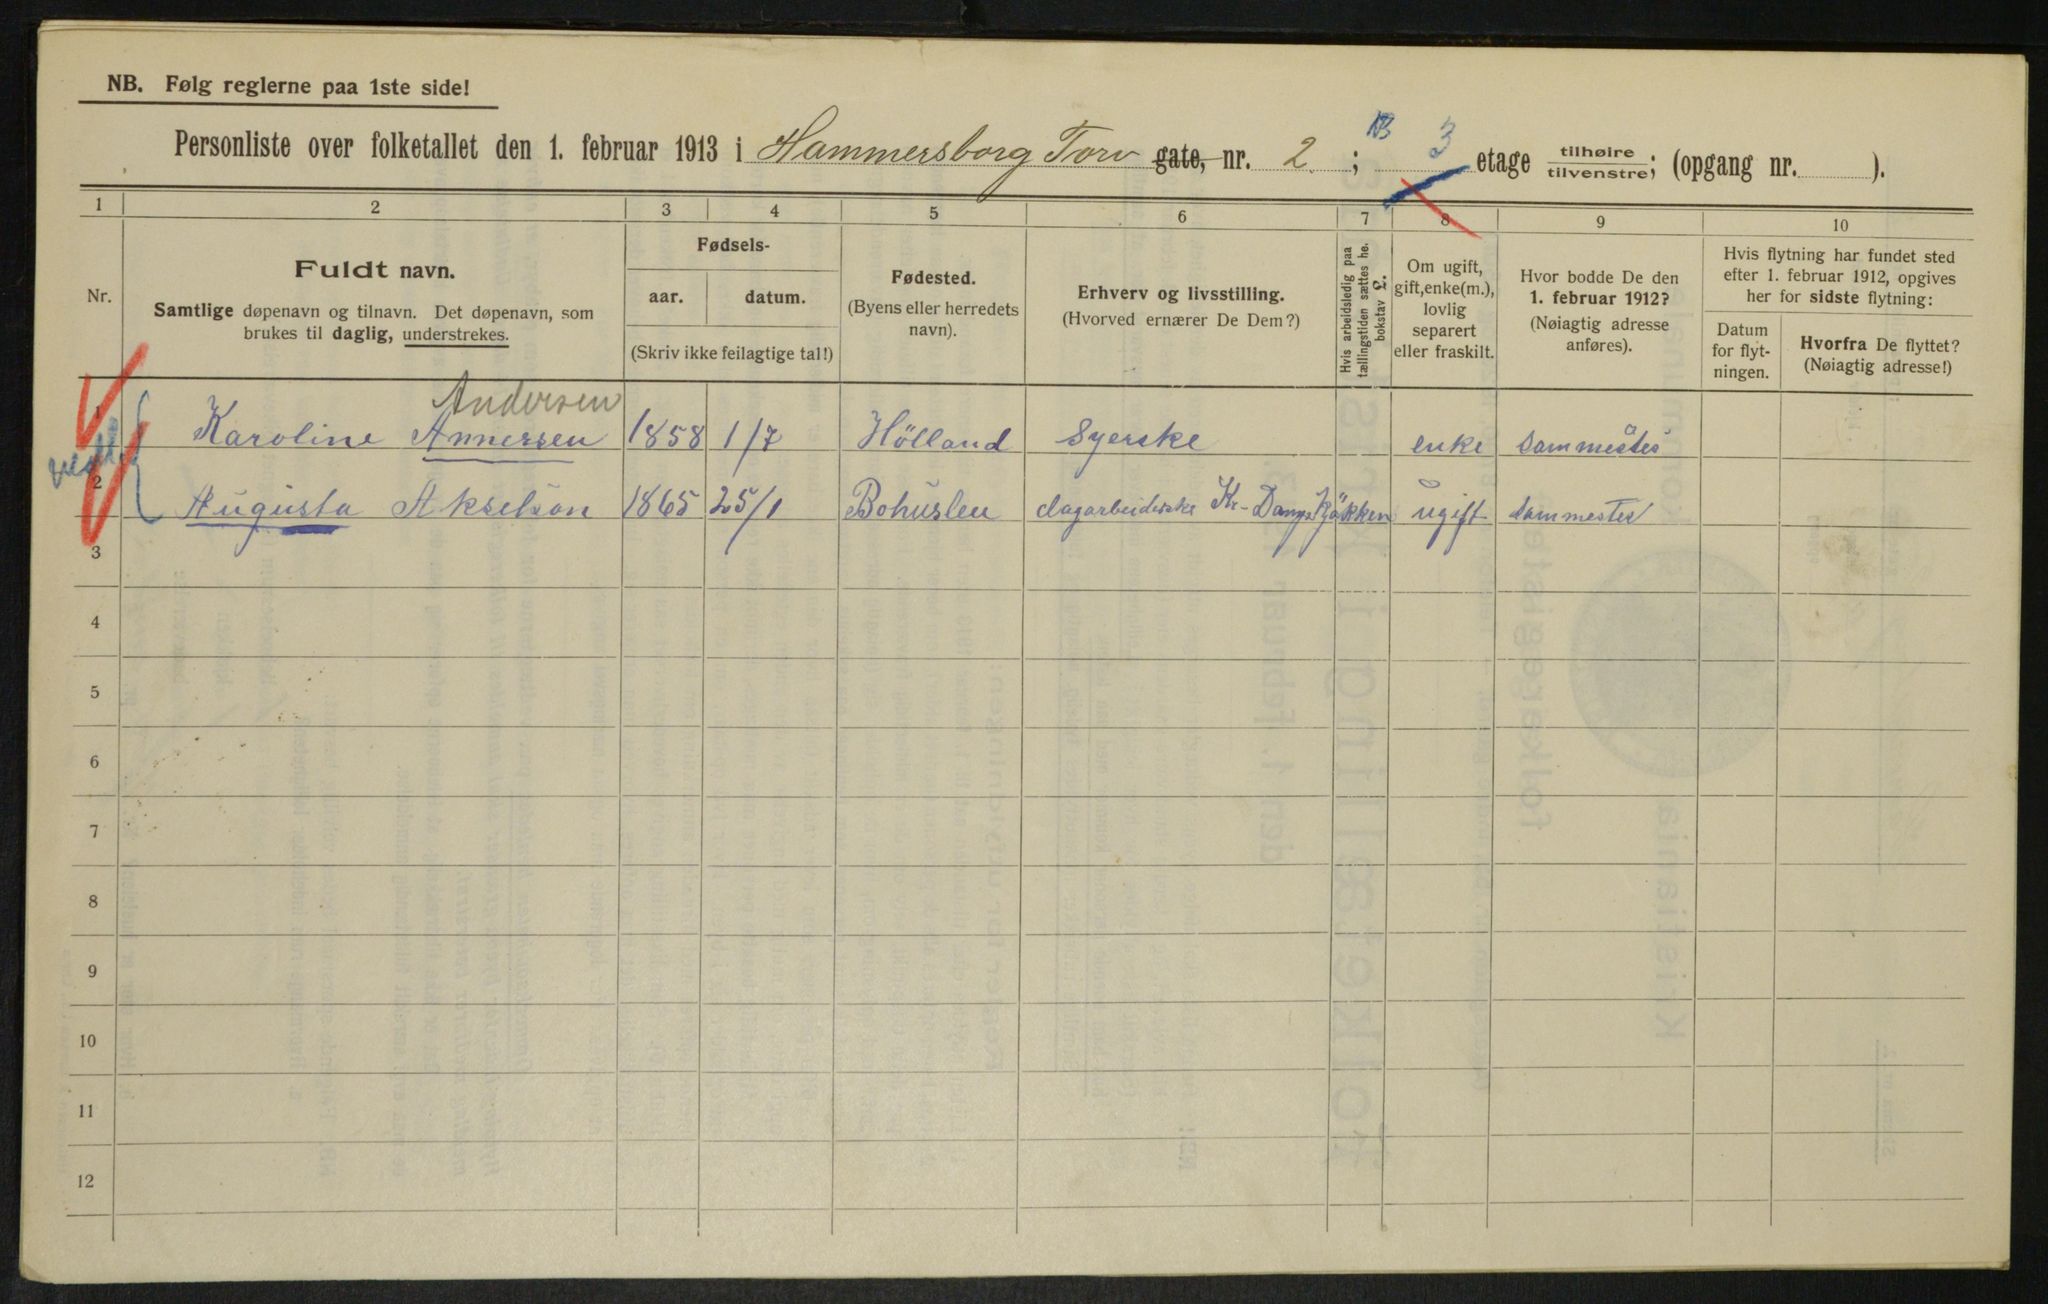 NB. Følg reglerne paa 1ste side!
Personliste over folketallet den 1. februar 1913 i Hammersborg Torv gate, nr. 2. ; NB 3 etage tilhøire tilvenstre; (opgang nr. ).
1 2 3 4 5 6 7 8 9 10
Nr.
Fuldt navn.
Samtlige døpenavn og tilnavn. Det døpenavn, som
brukes til daglig, understrekes.
Fødsels-
aar. datum.
(Skriv ikke feilagtige tal!)
Fødested.
(Byens eller herredets
navn).
Erhverv og livsstilling.
(Hvorved ernærer De Dem?)
Hvis arbeidsledig paa
tællingstiden sættes he.
bokstav L.
Om ugift,
gift, enke(m.),
lovlig
separert
eller fraskilt.
Hvor bodde De den
1. februar 1912?
(Nøiagtig adresse
anføres).
Hvis flytning har fundet sted
efter 1. februar 1912, opgives
her for sidste flytning:
Datum
for flyt-
ningen.
Hvorfra De flyttet?
(Nøiagtig adresse!)
Andersen
1 Karoline Annersen 1858 1/7 Hölland Syerske enke Sammestes
2 Augusta Akselson 1865 25/1 Bohuslen dagarbeiderske Kr- Damps Kjökken ugift Sammestes
3
4
5
6
7
8
9
10
11
12